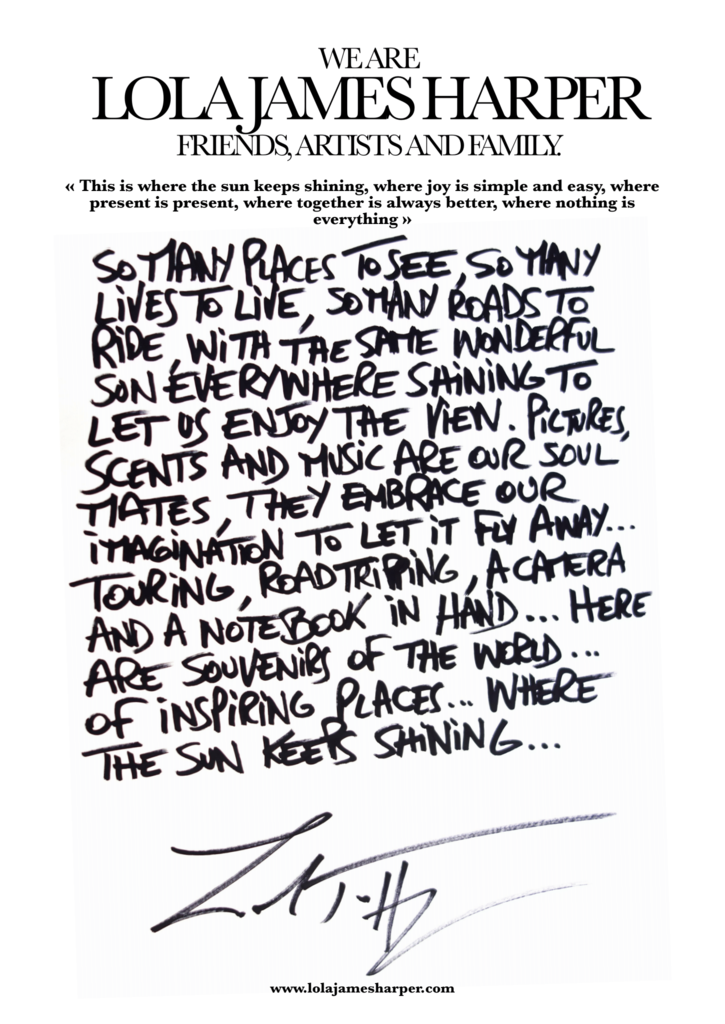 WE ARE
LOLA JAMES HARPER
FRIENDS, ARTISTS AND FAMILY.
« This is where the sun keeps shining, where joy is simple and easy, where
present is present, where together is always better, where nothing is
everything »
SO MANY PLACES TO SEE, SO MANY
LIVES TO LIVE, SO MANY ROADS TO
RIDE, WITH THE SAME WONDERFUL
SUN EVERYWHERE SHINING TO
LET US ENJOY THE VIEW. PICTURES,
SCENTS AND MUSIC ARE OUR SOUL
MATES, THEY EMBRACE OUR
IMAGINATION TO LET IT FLY AWAY...
TOURING, ROADTRIPPING, A CAMERA
AND A NOTEBOOK IN HAND... HERE
ARE SOUVENIRS OF THE WORLD...
OF INSPIRING PLACES... WHERE
THE SUN KEEPS SHINING...
www.lolajamesharper.com